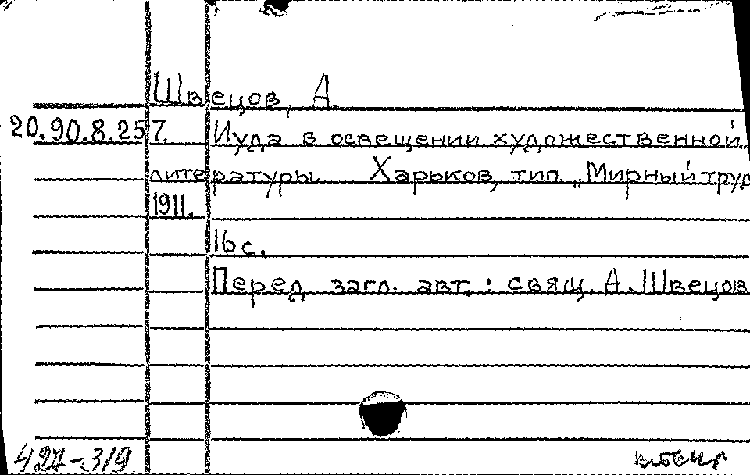 Швецов, А.
20.90.8.257. Иуда в освещении художественной
литературы. Харьков, тип. „Мирный труд
1911.
16 с.
Перед загл. авт.: свящ. А. Швецов
427-319